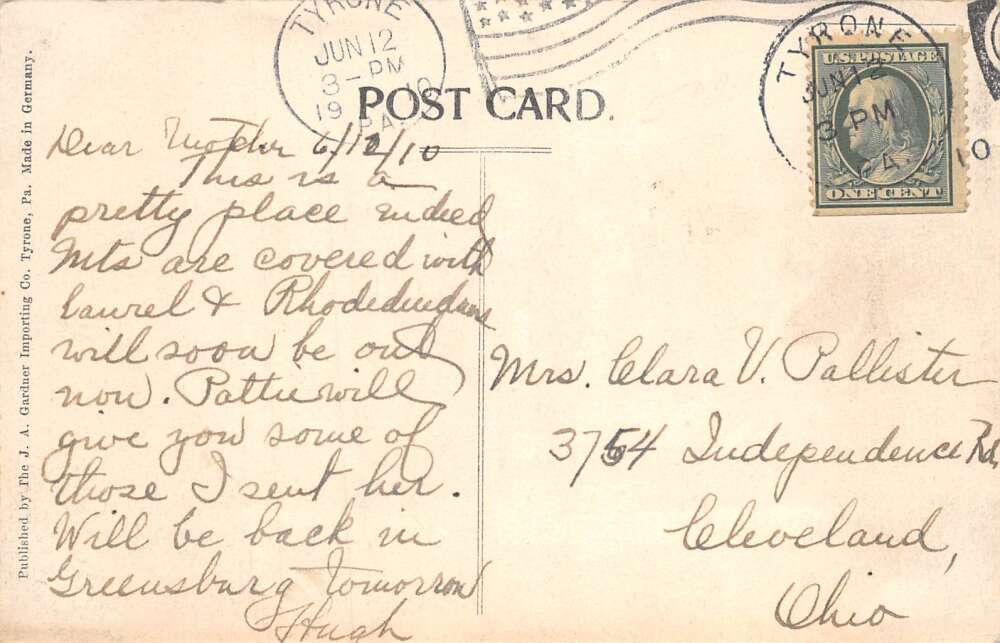 TYRONE
JUN 12
3-PM
1910
PA.
POST CARD.
TYRONE
JUN 12
3 PM
PA
10
U.S. POSTAGE
ONE CENT
Published by The J. A. Gardner Importing Co. Tyrone, Pa. Made in Germany.
Dear Mother 6/12/10
This is a
pretty place indeed
Mts are covered with
laurel & Rhodedendrons
will soon be out
now. Pattie will
give you some of
those I sent her.
Will be back in
Greensburg tomorrow
Hugh
Mrs. Clara V. Pallister
3754 Independence Rd,
Cleveland,
Ohio